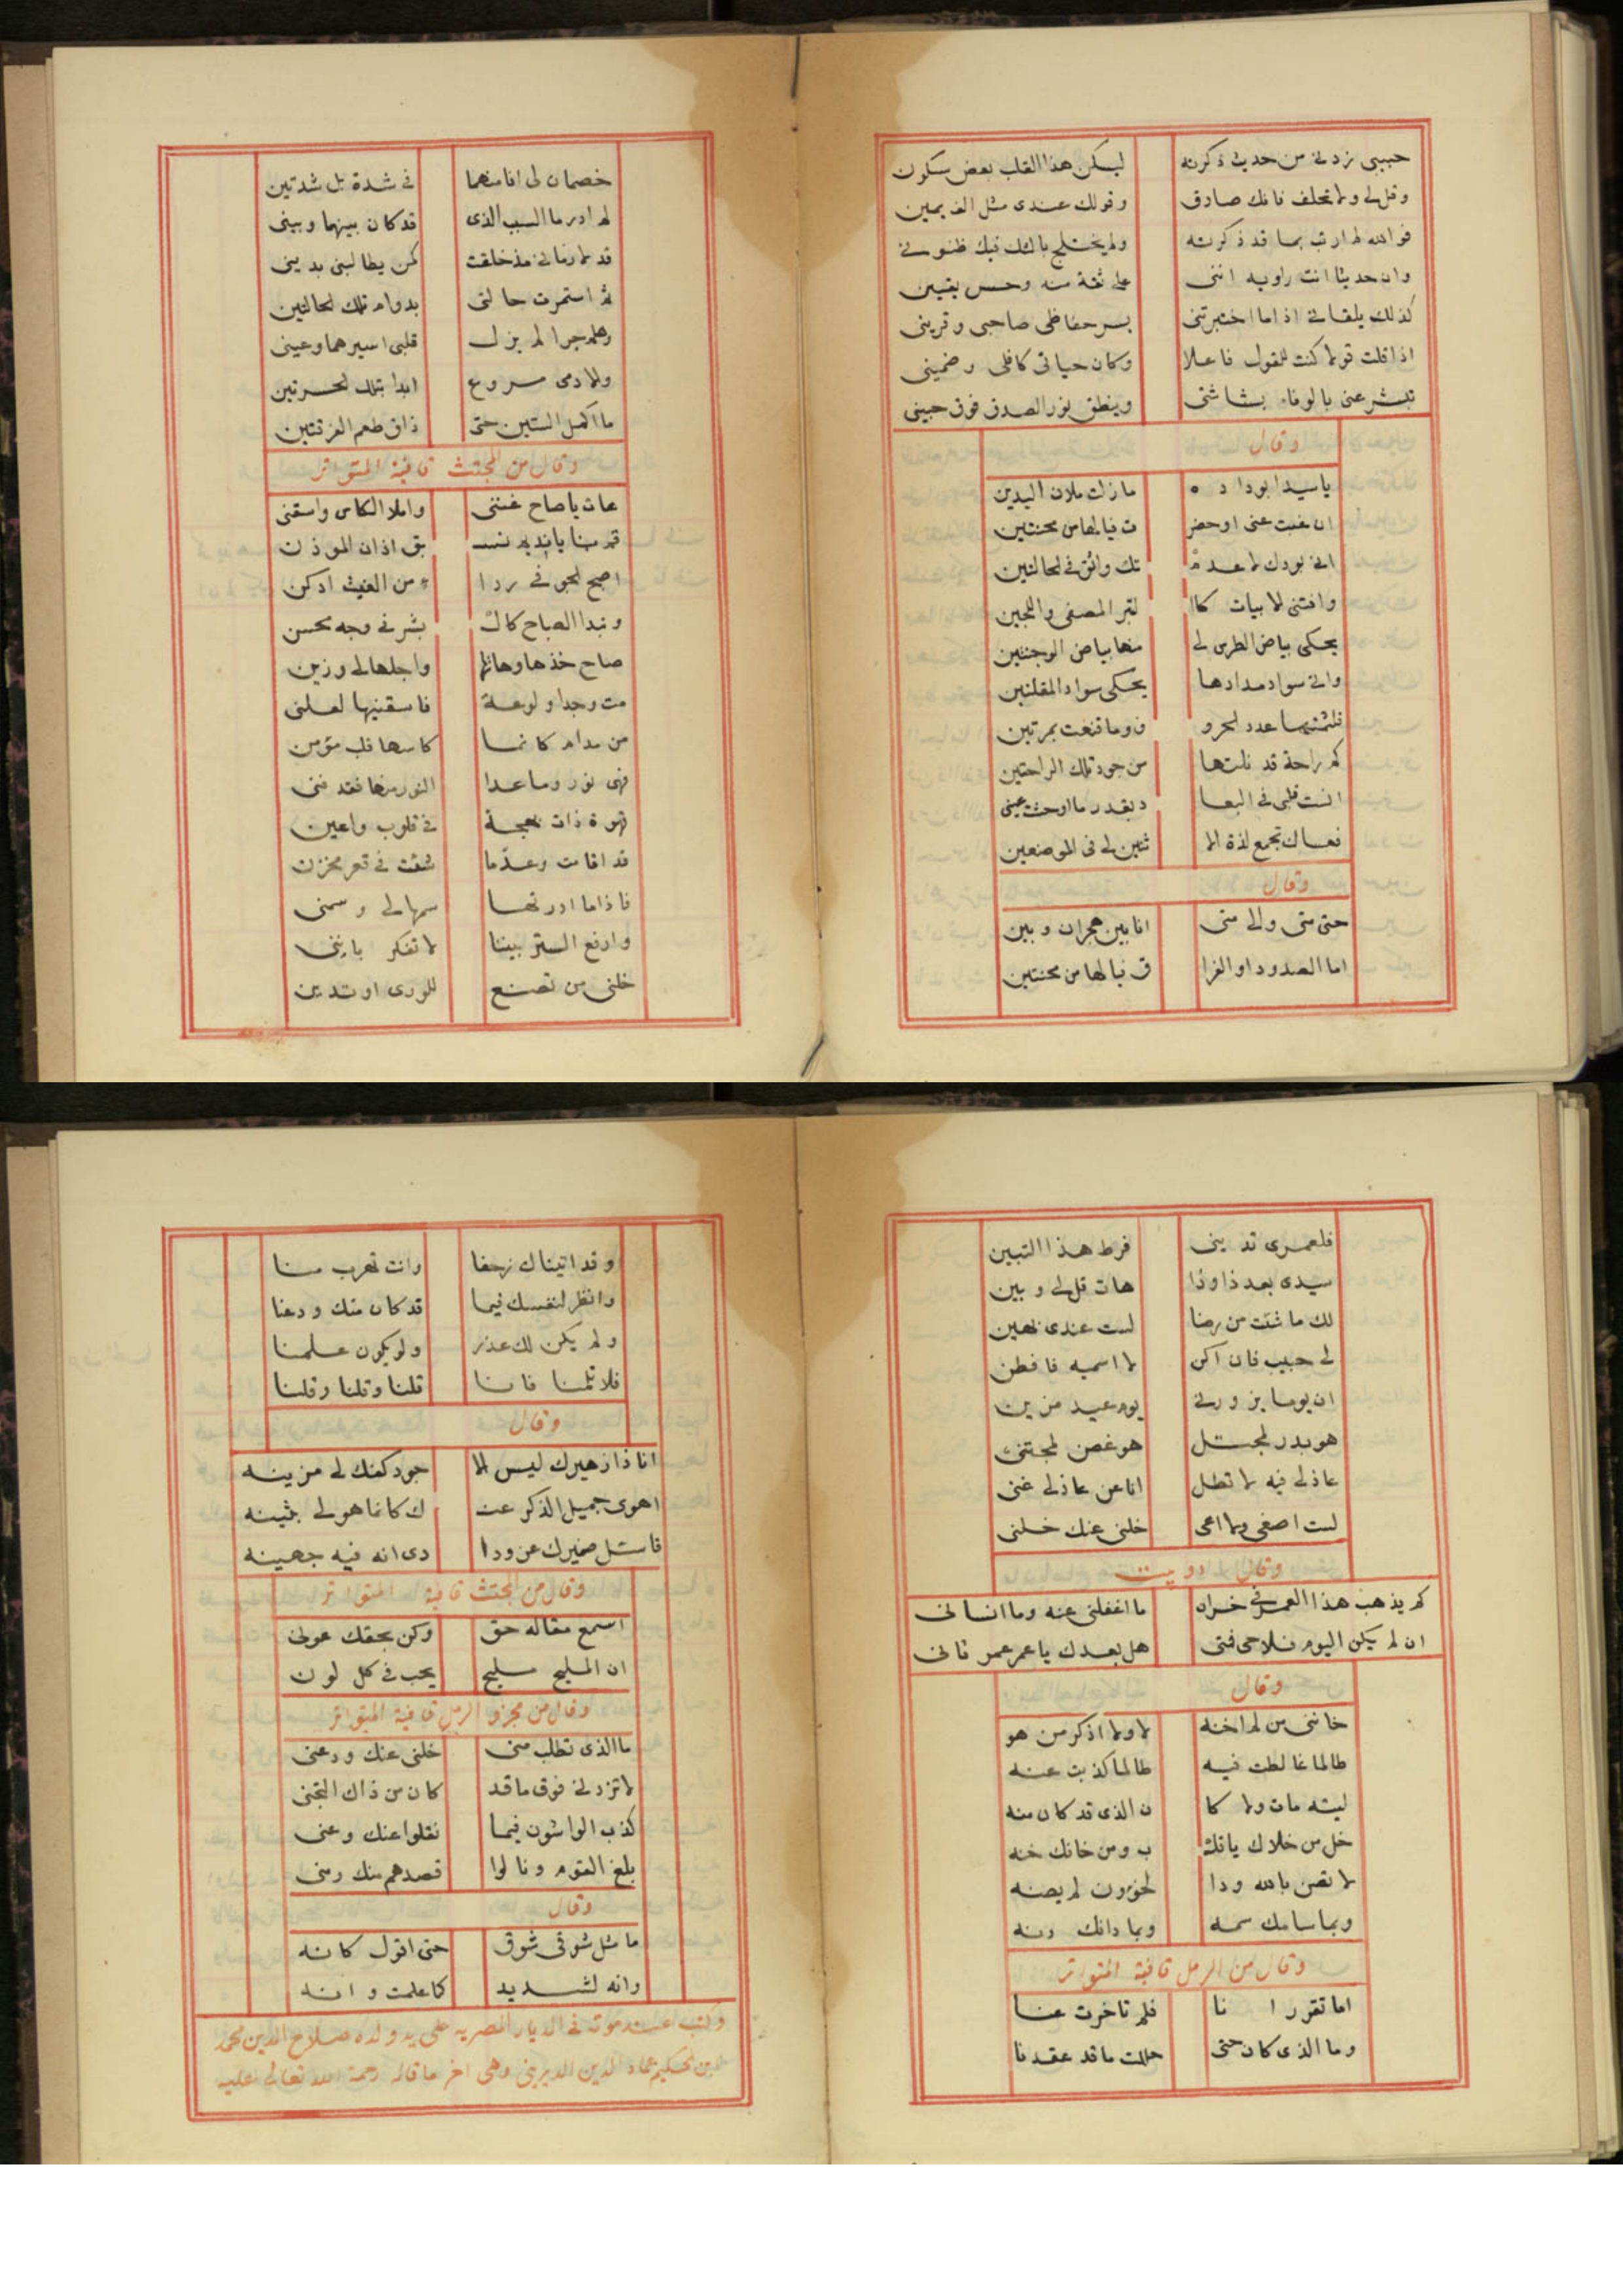 حبيبى زدنى من حديث ذكرته ليسكن هذا القلب بعض سكون
وقل لى ولا تحلف فانك صادق وقولك عندى مثل الف يمين
فوالله لم ارتب بما قد ذكرته ولم يختلج بالشك فيك ظنونى
وان حديثا انت راويه اننى على ثقة منه وحسن يقين
كذلك يلقانى اذا ما اختبرتنى يسر حفاظى صاحبى وقرينى
اذا قلت قولا كنت للقول فاعلا وكان حياتى كافلى وضمينى
تبشر عنى بالوفاء بشاشتى وينطق نور الصدق فوق جبينى
وقال
يا سيدا بوداده ما زلت ملان اليدين
ان غبت عنى او حضر ت فيالها من محنتين
انى بودك لا عدمـ تك واثق فى الحالتين
وافتنى الابيات كا لتبر المصفى واللجين
يحكى بياض الطرس لى منها بياض الوجنتين
وانى سواد مدادها يحكى سواد المقلتين
فلثمتها عدد الحرو ف وما قنعت بمرتين
كم راحة قد نلتها من جود تلك الراحتين
انست قلبى فى البعا د بقدر ما اوحشت عينى
فعساك تجمع لذة الا ثنين لى فى الموضعين
وقال
حتى متى والى متى انا بين هجران وبين
اما الصدود او الفرا ق فيالها من محنتين
خصمان لى انا منهما فى شدة بل شدتين
لم ادر ما السبب الذى قد كان بينهما وبينى
قد لازمانى مذ خلقت كمن يطالبنى بدينى
ثم استمرت حالتى بدوام تلك الحالتين
وهلم جرا لم يزل قلبى اسيرهما وعينى
ولادمى مروع ابدا بتلك الحسرتين
ما اكمل الستين حتى ذاق طعم الفرقتين
وقال من المجتث قافية المتواتر
هات يا صاح غننى واملا الكاس واسقنى
قم بنا يا نديم نسـ بق اذان الموذن
اصبح الجو فى ردا ء من الغيث ادكن
وتبدا الصباح كالـ بشر فى وجه محسن
صاح خذها وهاتها واجلها لى وزين
مت وجدا ولوعة فاسقنيها لعلنى
من مدام كانما كاسها قلب مؤمن
فهى نور وما عدا النور منها فقد فنى
قهوة ذات بهجة فى قلوب واعين
قد اقامت وعدما شئت فى قعر مخزن
فاذا ما ادرتها سمها لى وسمنى
وارفع الستر بيننا لا تفكر باننى
خلنى من تصنع للورى او تدين
فلعمرى تدينى فرط هذا التبين
سيدى بعد ذا وذا هات قل لى وبين
لك ما شئت من رضا لست عندى بهين
لى حبيب فان اكن لا اسميه فافطن
ان يوما يزورنى يوم عيد مزين
هو بدر لمجتـلى هو غصن لمجتنى
عاذلى فيه لا تطل انا عن عاذلى غنى
لست اصغى ولا اعى خلنى عنك خلنى
وقال دوبيت
كم يذهب هذا العمر فى خسران ما اغفلنى عنه وما انسانى
ان لم يكن اليوم فلاحى فمتى هل بعدك يا عمر عمر ثانى
وقال
خاننى من لم اخنه لا ولا اذكر من هو
طالما غالطت فيه طالما كذبت عنه
ليته مات ولا كا ن الذى قد كان منه
خل من خلاك يا قلـ ب ومن خانك خنه
لا تصن بالله ودا لخؤون لم يصنه
وبما سامك سمه وبما دانك دنه
وقال من الرمل قافية المتواتر
اما تقررا نا فلم تاخرت عنا
وما الذى كان حتى حللت ما قد عقدنا
وقد اتيناك زحفا وانت تهرب منا
وانظر لنفسك فيما قد كان منك ودعنا
ولم يكن لك عذر ولو يكون علمنا
فلا تلمنا فانا قلنا وقلنا وقلنا
وقال
انا ذا زهيرك ليس الا جود كفك لى مزينه
اهوى جميل الذكر عنـ ك كانما هو لى بثينه
فاسئل ضميرك عن ودا دى انه فيه جهينه
وقال من المجتث قافية المتواتر
اسمع مقاله حق وكن بحقك عونى
ان المليح مليح يحب فى كل لون
وقال من مجزو الرمل قافية المتواتر
ما الذى تطلب منى خلنى عنك ودعنى
لا تزدنى فوق ما قد كان من ذاك التجنى
كذب الواشون فيما نقلوا عنك وعنى
بلغ القوم ونالوا قصدهم منك ومنى
وقال
ما مثل شوقى شوق حتى اقول كانه
وانه لشديد كما علمت وانه
وكتب عند موته فى الديار المصريه على يد ولده صلاح الدين محمد
ابن الحكيم عماد الدين الديرينى وهى اخر ما قاله رحمة الله تعالى عليه